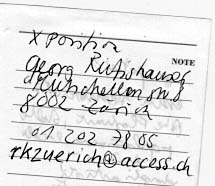 x position
NOTE
Georg
8002 Zürich
01 202 78 05
rkzuerich@access.ch